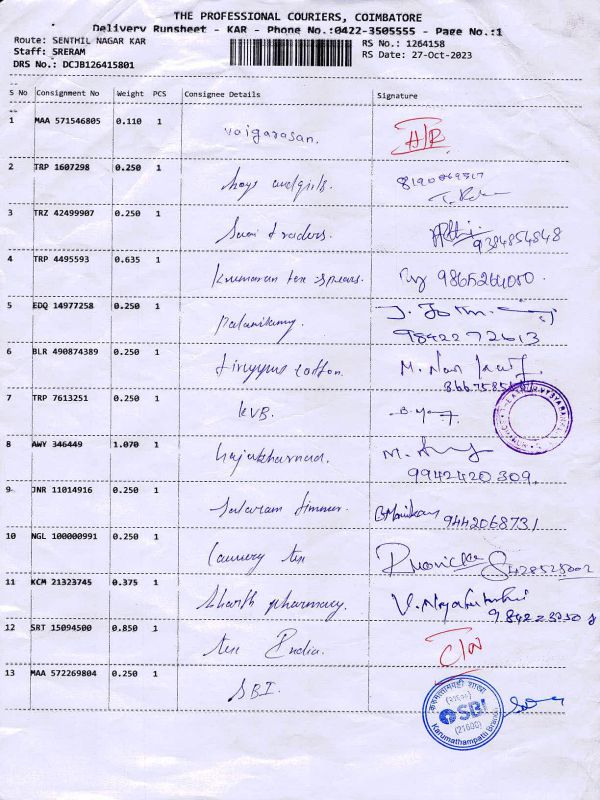 THE PROFESSIONAL COURIERS, COIMBATORE
Delivery Runsheet - KAR - Phone No.:0422-3505555 - Page No.:1
Route: SENTHIL NAGAR KAR
Staff: SRERAM
DRS No.: DCJB126415801
RS No.: 1264158
RS Date: 27-Oct-2023
S No Consignment No Weight PCS Consignee Details Signature
1 MAA 571546805 0.110 1 vaigarasan.
2 TRP 1607298 0.250 1 boys and girls.
3 TRZ 42499907 0.250 1 Sami traders. 9384854848
4 TRP 4495593 0.635 1 Kumaran tex spears. 9865264050.
5 EDQ 14977258 0.250 1 Palanisamy. 9842272613
6 BLR 490874389 0.250 1 tiruppur cotton.
7 TRP 7613251 0.250 1 KVB.
8 AWY 346449 1.070 1 9942420309.
9 JNR 11014916 0.250 1 9442068731
10 NGL 100000991 0.250 1 tex
11 KCM 21323745 0.375 1 pharmacy.
12 SRT 15094500 0.850 1 tex India.
13 MAA 572269804 0.250 1 SBI.
SBI
(21600)
Karumathampatti Branch